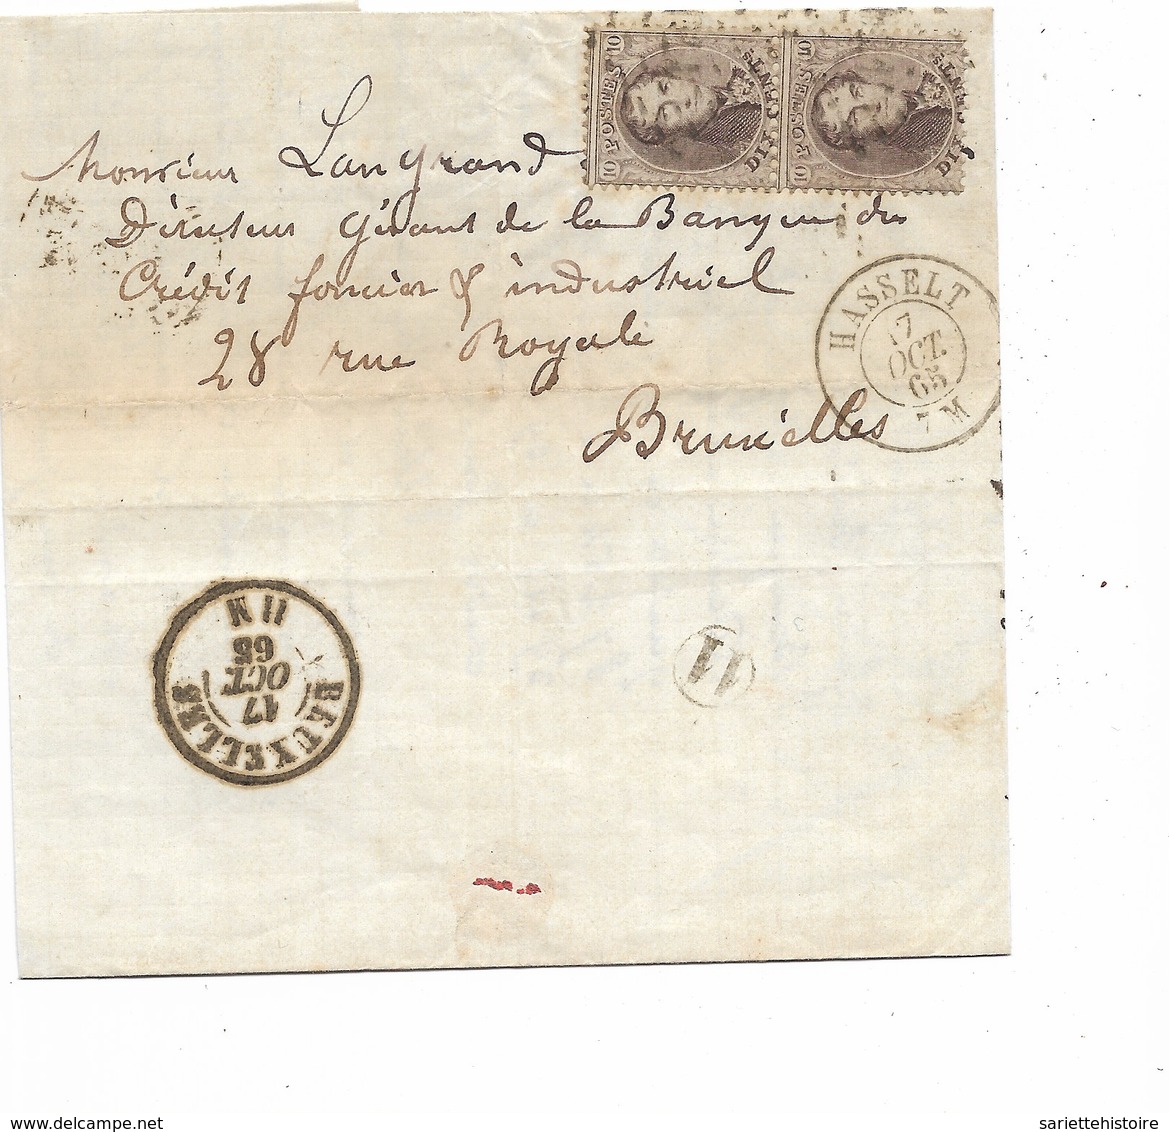 10 POSTES 10
DIX CENTS
10 POSTES 10
DIX CENTS
Monsieur Langrand
Directeur Gérant de la Banque du
Crédit foncier & industriel
28 rue Royale
Bruxelles
HASSELT
17
OCT.
65
7 M
BRUXELLES
17
OCT
65
11 M
11
sariettehistoire
delcampe.net